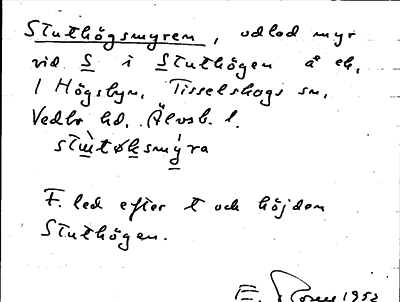 Stuthögsmyren, odlad myr
vid S i Stuthögen å ek.
1 Högsbyn, Tisselskogs sn,
Vedbo hd, Älvsb. l.
stu̇̀tøksmy̍ra
F. led efter t och höjden
Stuthögen.
E. 1952